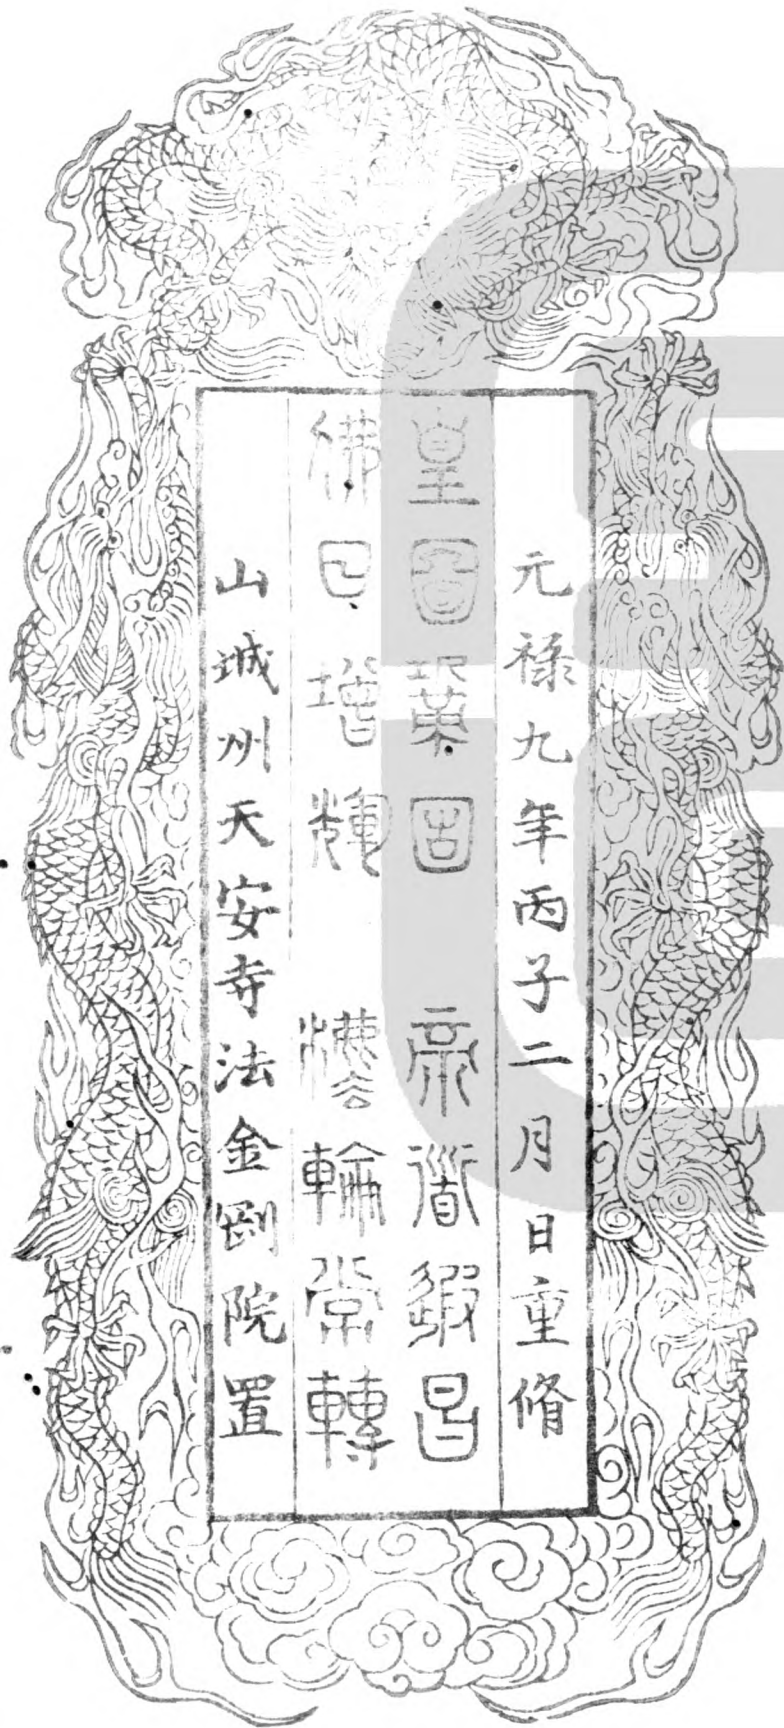 元禄九年丙子二月日重脩
皇圖鞏固　帝道遐昌
佛日增輝　法輪常轉
山城州天安寺法金剛院置